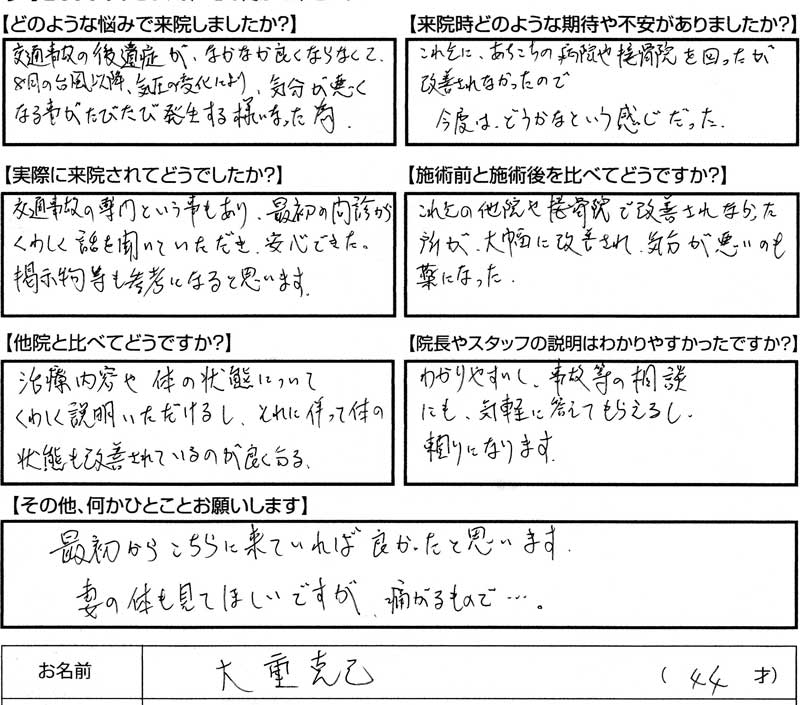 【どのような悩みで来院しましたか?】
交通事故の後遺症が、なかなか良くならなくて、
8月の台風以降、気圧の変化により、気分が悪く
なる事がたびたび発生する様になった為.
【来院時どのような期待や不安がありましたか?】
これまでに、あちこちの病院や接骨院を回ったが
改善されなかったので
今度は、どうかなという感じだった.
【実際に来院されてどうでしたか?】
交通事故の専門という事もあり、最初の問診が
くわしく話を聞いていただき、安心できた。
掲示物等も参考になると思います.
【施術前と施術後を比べてどうですか?】
これまでの他院や接骨院で改善されなかった
所が、大幅に改善され、気分が悪いのも
楽になった.
【他院と比べてどうですか?】
治療内容や体の状態について
くわしく説明いただけるし、それに伴って体の
状態も改善されているのが良く分る.
【院長やスタッフの説明はわかりやすかったですか?】
わかりやすいし、事故等の相談
にも、気軽に答えてもらえるし、
頼りになります.
【その他、何かひとことお願いします】
最初からこちらに来ていれば良かったと思います.
妻の体も見てほしいですが、痛がるもので…。
お名前 大重克己 (44才)